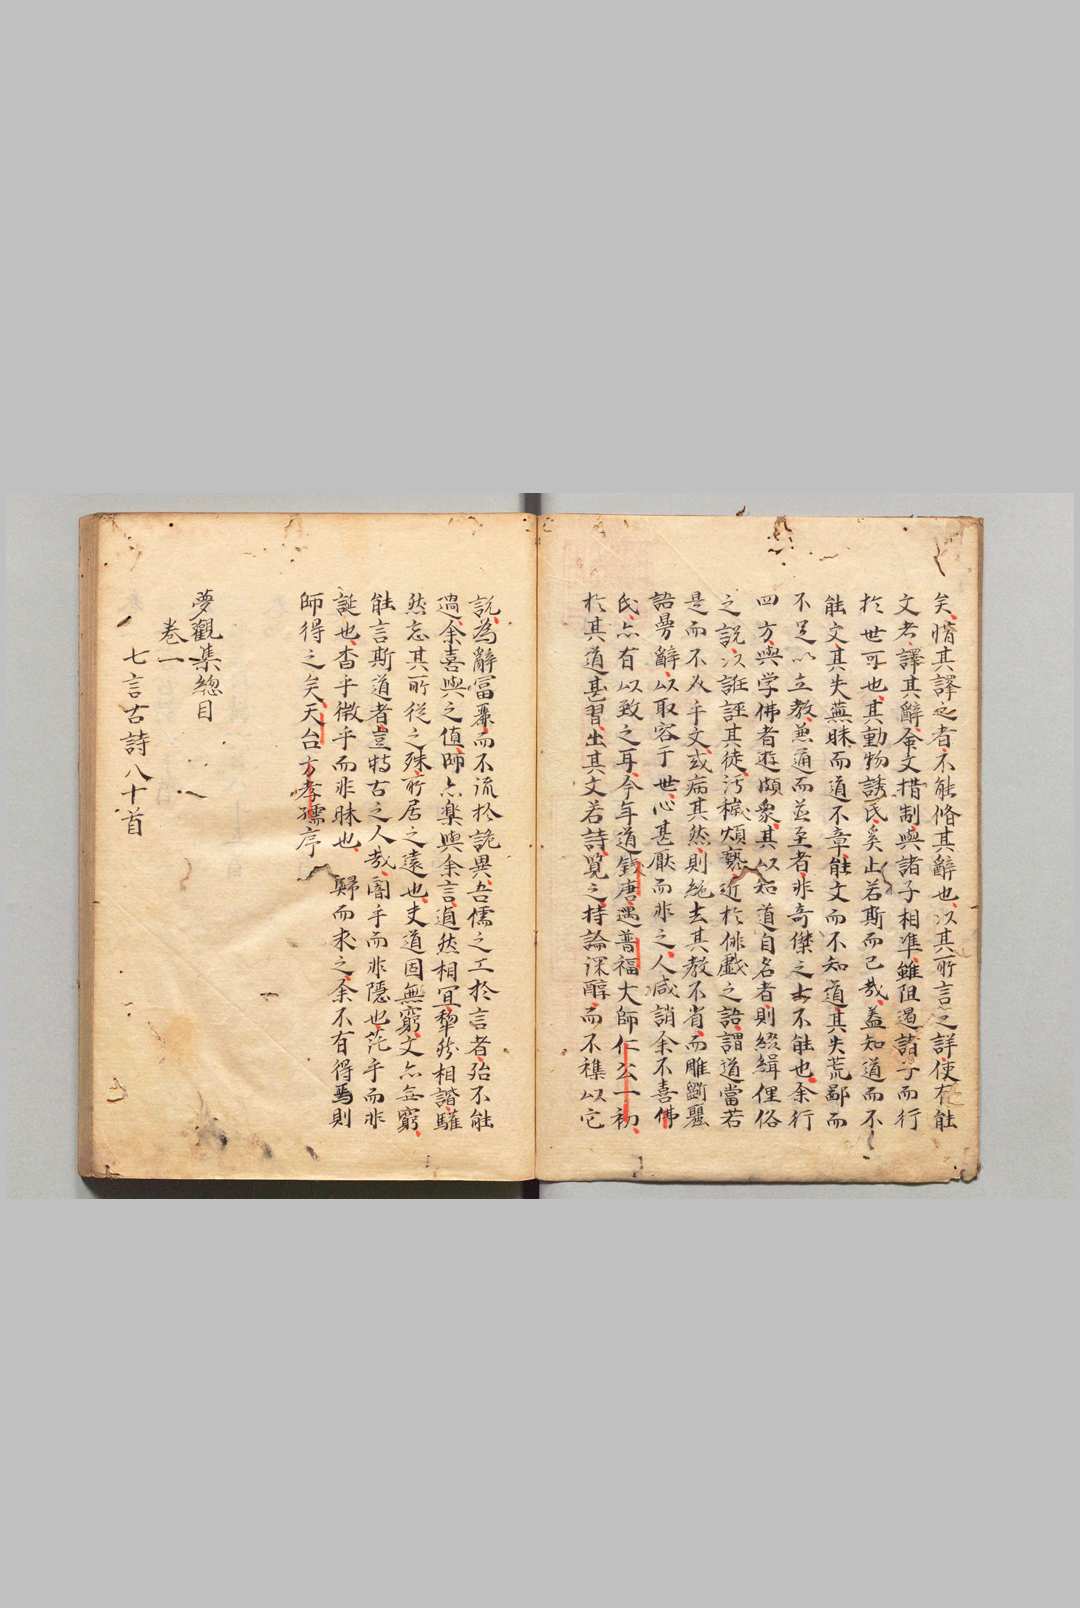 矣惜其譯之者不能脩其辭也以其所言之詳使有能
文者譯其辭命文措制與諸子相準雖阻遏諸子而行
於世可也其動物誘民奚止若斯而已哉盖知道而不
能文其失蕪昧而道不章能文而不知道其失荒鄙而
不足以立教兼通而並至者非奇傑之士不能也余行
四方與学佛者遊頗衆其以知道自名者則綴緝俚俗
之說以誑誣其徒汚穢煩褻近於俳戲之語謂道當若
是而不及乎文或病其然則絶去其教不省而雕斲
語辭以取容于世心甚厭而非之人咸誚余不喜佛
氏亦有以致之耳今年道錢唐遇普福大師仁公一初
於其道甚習出其文若詩覧之持論深醇而不襍以它
說為辭富麗而不流於詭異吾儒之工於言者殆不能
過余喜與之値師亦樂與余言適然相宜犂然相諧驩
然忘其所從之殊所居之遠也夫道固無窮文亦無窮
能言斯道者豈特古之人哉闇乎而非隱也茫乎而非
誕也杳乎微乎而非昧也歸而求之余不有得焉則
師得之矣天台方孝孺序
夢觀集總目
卷一
七言古詩八十首